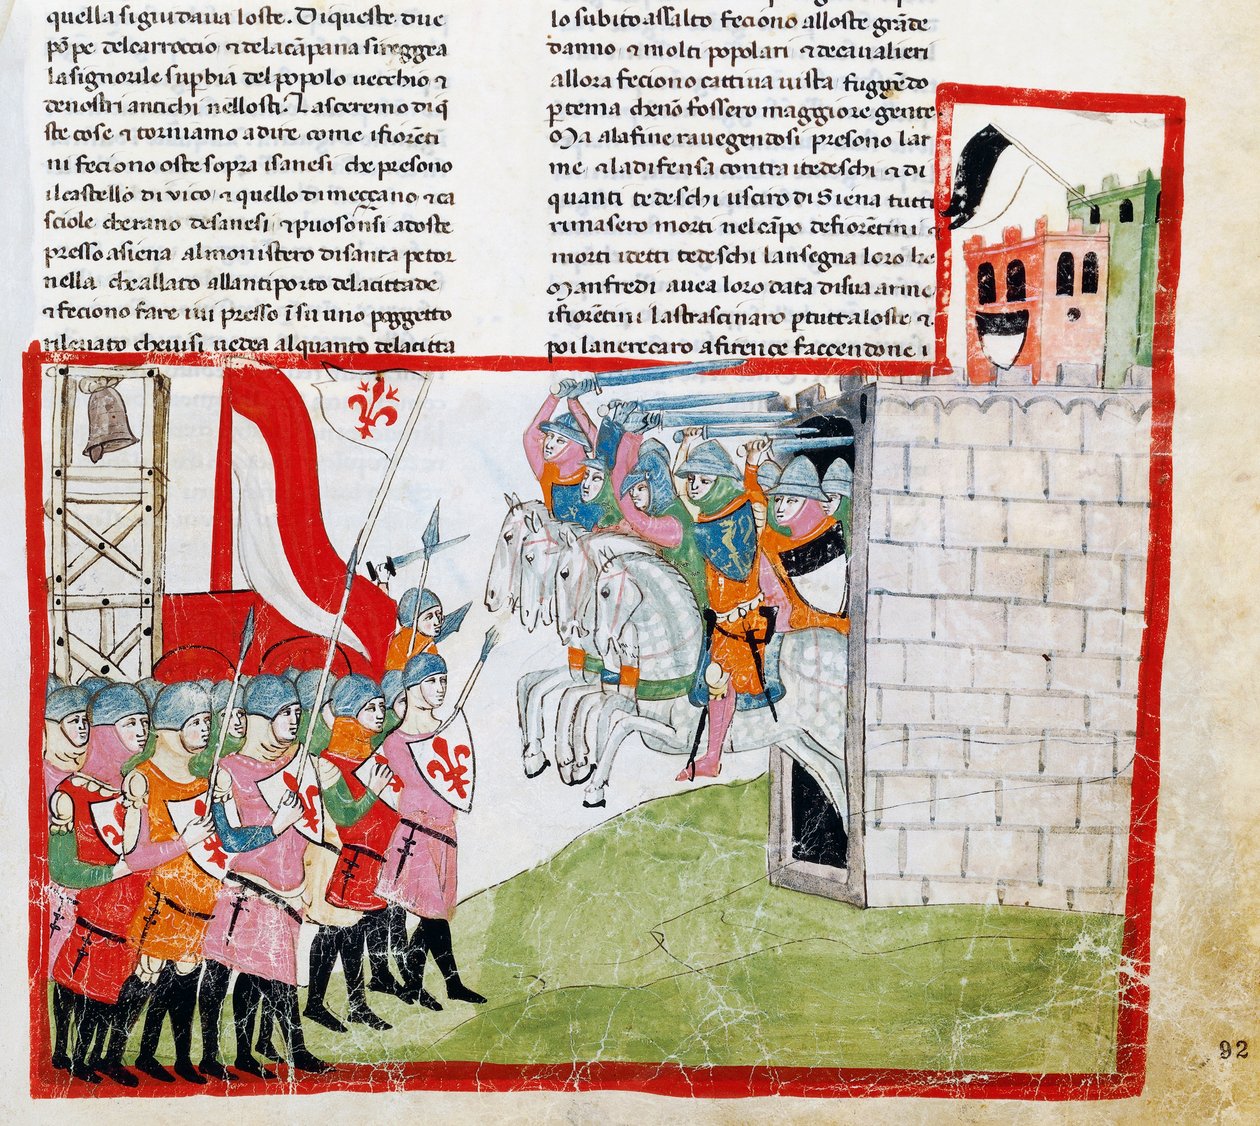 quella si guidaua loste. Di queste due
põpe del carroccio ⁊ dela cãpana si reggea
la signorile supbia del popolo uecchio ⁊
de nostri antichi nellosti. Lasceremo di q̃
ste cose ⁊ torniamo a dire come i fiorẽti
ni feciono oste sopra i sanesi che presono
il castello di uico ⁊ quello di mezzano ⁊ ca
sciole cherano de sanesi ⁊ puosonsi adoste
presso a siena al monistero di santa petor
nella che allato allantiporto dela citta de
⁊ feciono fare iui presso ĩ su uno poggetto
rileuato che uisi uedea alquanto dela citta
lo subito assalto feciono alloste grãde
danno ⁊ molti popolari ⁊ de caualieri
allora feciono cattiua uista fuggẽdo
p tema che nõ fossero maggiore gente
Ma ala fine rauegendosi presono lar
me ⁊ la difensa contra i tedeschi ⁊ di
quanti tedeschi usciro di Siena tutti
rimasero morti nel cãpo de fiorentini ⁊
morti i detti tedeschi lansegna loro
Manfredi auea loro data di sua arme
i fiorẽtini la strascinaro p tutta loste ⁊
poi la nerecaro a firençe faccendone i
92